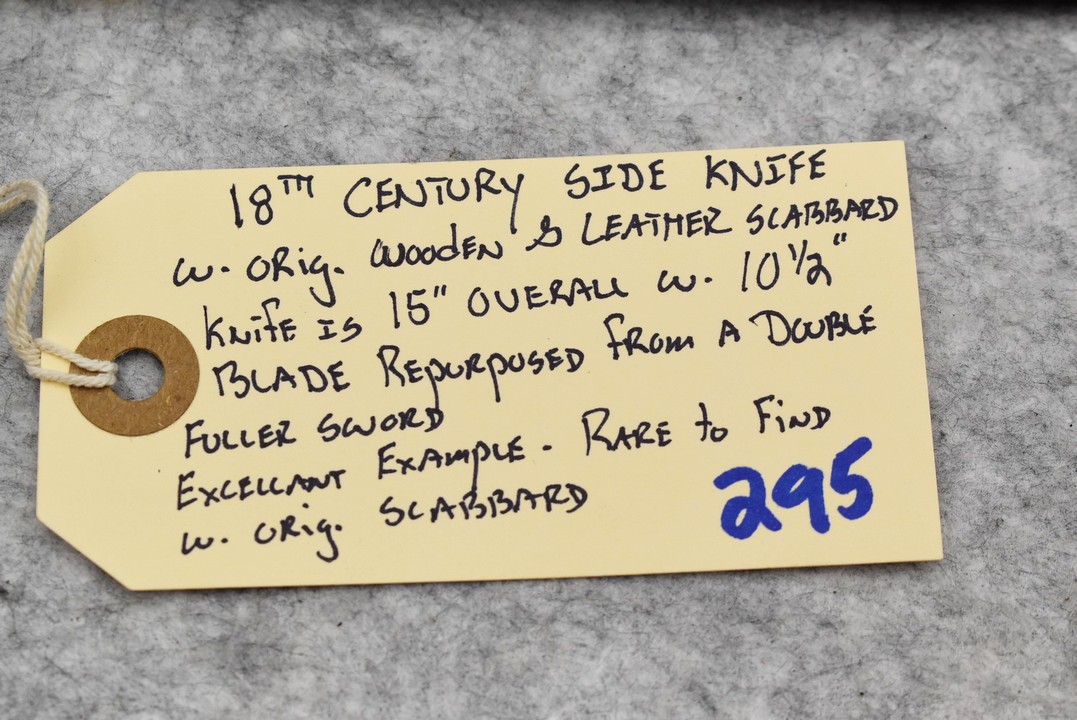 18TH CENTURY SIDE KNIFE
w. ORig. WOODEN & LEATHER SCABBARD
KNIFE IS 15" OVERALL w. 10 1/2"
BLADE REPURPOSED FROM A DOUBLE
FULLER SWORD
EXCELLANT EXAMPLE - RARE to FIND
w. ORig. SCABBARD
295